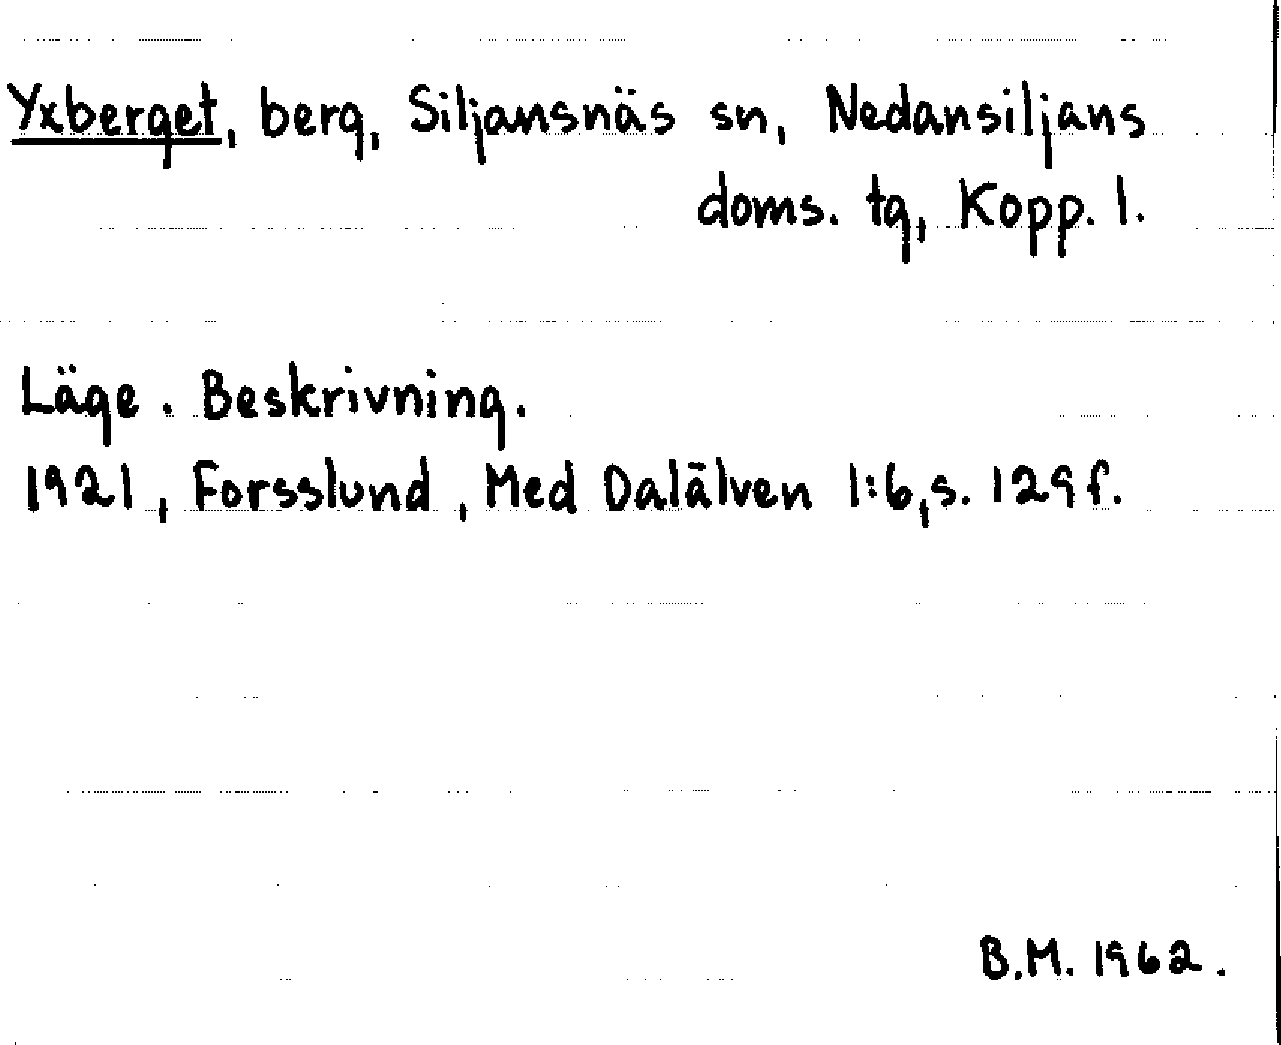 Yxberget, berg, Siljansnäs sn, Nedansiljans
doms. tg, Kopp. l.
Läge. Beskrivning.
1921, Forsslund, Med Dalälven 1:6, s. 129 f.
B.M. 1962.